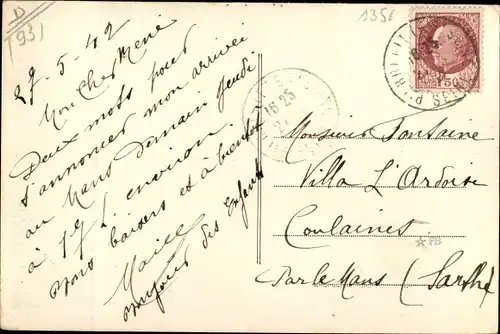 D
(93)
1358
27-5-42
Mon Cher René
Deux mots pour
t'annoncer mon arrivée
au Mans Demain Jeudi
à 17 h. environ.
Bons baisers et à bientôt
bonjour des Enfants
16 25
1F50
Monsieur Fontaine
Villa L'Ardoise
Coulaines
Par le Mans (Sarthe)
PB